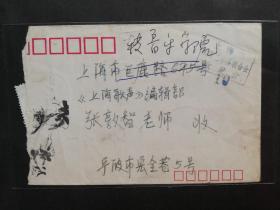 转音乐学院
上海市巨鹿路675号
《上海歌声》编辑部
张敦智老师 收
平陂市景全巷5号